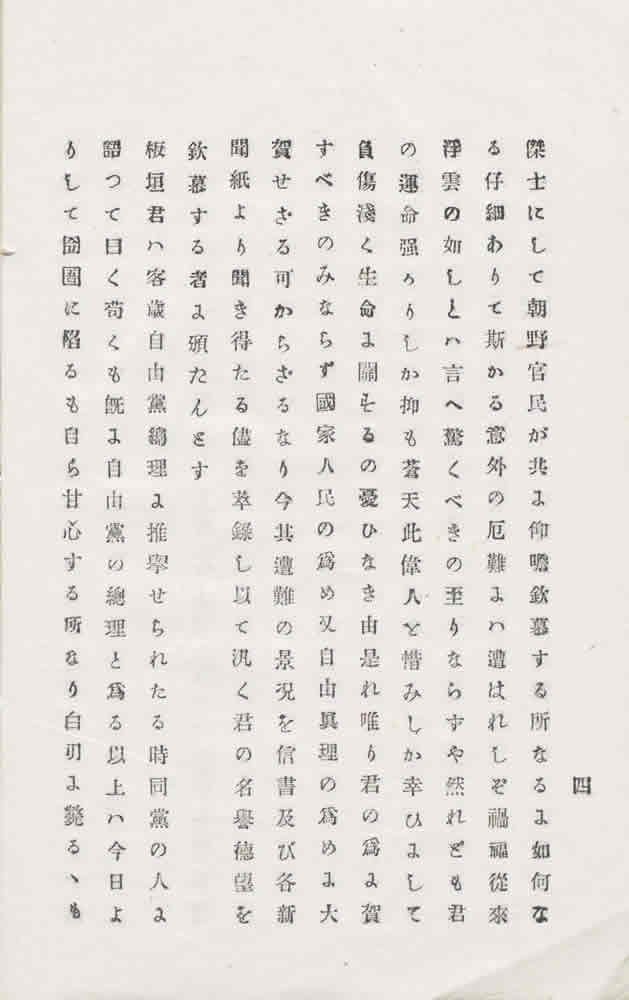 四
傑士にして朝野官民が共に仰瞻欽慕する所なるに如何な
る仔細ありて斯かる意外の厄難にハ遭はれしぞ禍福從來
浮雲の如しとハ言へ驚くべきの至りならずや然れども君
の運命强かりしか抑も蒼天此偉人を惜みしか幸ひにして
負傷淺く生命に關するの憂ひなき由是れ唯り君の爲に賀
すべきのみならず國家人民の爲め又自由眞理の爲めに大
賀せざる可からざるなり今其遭難の景况を信書及び各新
聞紙より聞き得たる儘を萃錄し以て汎く君の名譽德望を
欽慕する者に頒たんとす
板垣君ハ客歲自由黨總理に推擧せられたる時同黨の人に
語つて曰く苟くも旣に自由黨の總理と爲る以上ハ今日よ
りして囹圄に陷るも自ら甘心する所なり白刃に斃るヽも